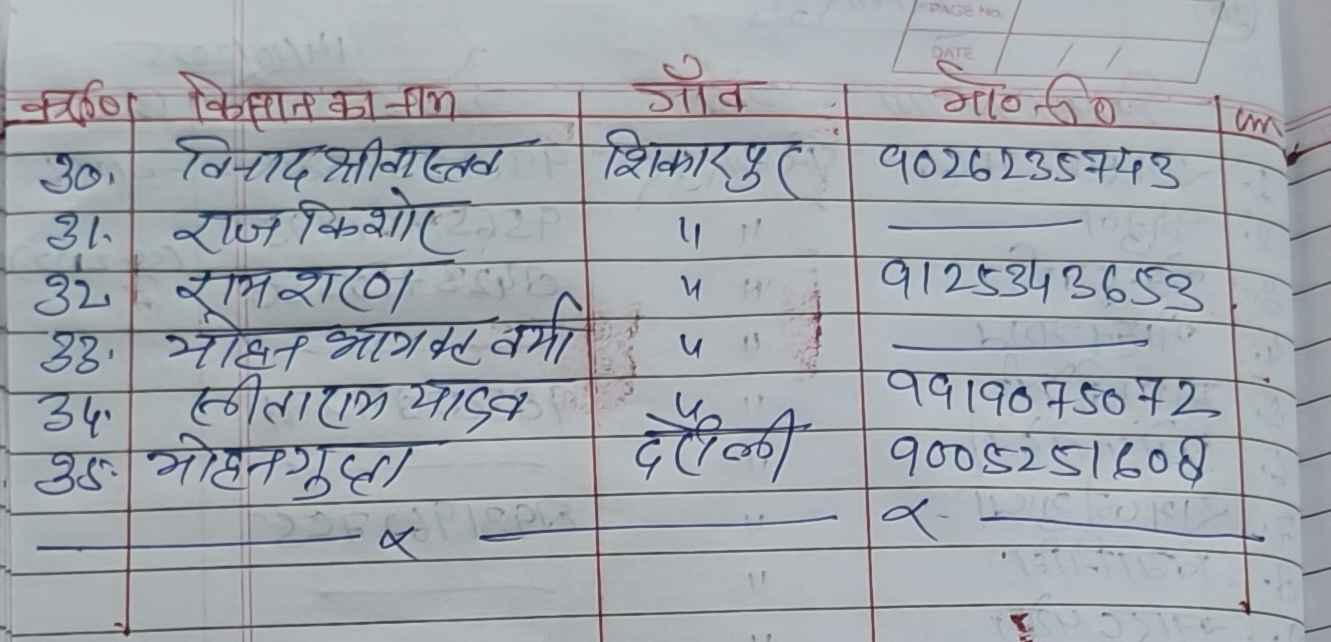 PAGE No.
DATE / /
क्र०सं० किसान का नाम गाँव मो० नं०
30. विनोद श्रीवास्तव शिकारपुर 9026235743
31. राज किशोर " ———
32. रामशरण " 9125343653
33. मोहन भागवत वर्मा " ———
34. सीताराम यादव " 9919075072
35. मोहन गुप्ता दरौली 9005251608